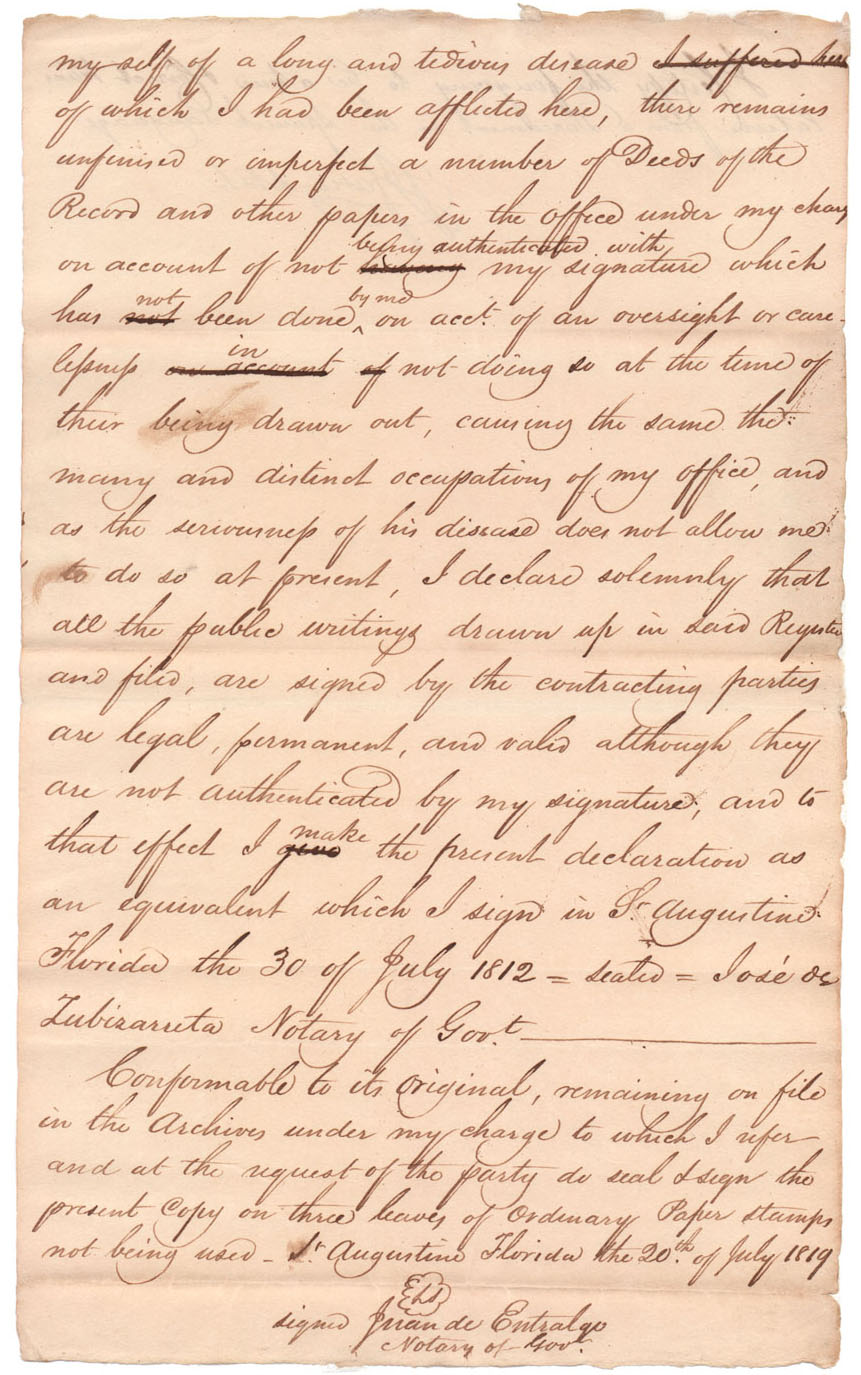 my self of a long and tedious disease I suffered here
of which I had been afflicted here, there remains
unfinised or imperfect a number of Deeds of the
Record and other papers in the office under my charg
being authenticated with
on account of not my signature which
not by me
has not been done, on acct. of an oversight or care-
in
lessness on account of not doing so at the time of
their being drawn out, causing the same the
many and distinct occupations of my office, and
as the seriousness of his disease does not allow me
to do so at present, I declare solemnly that
all the public writings drawn up in said Register
and filed, are signed by the contracting parties
are legal, permanent, and valid although they
are not authenticated by my signature, and to
make
that effect I give the present declaration as
an equivalent which I sign in St. Augustine
Florida the 30 of July 1812 = sealed = José de
Zubizarreta Notary of Govt.
Conformable to its original, remaining on file
in the Archives under my charge to which I refer
and at the request of the party do seal & sign the
present Copy on three leaves of Ordinary Paper stamps
not being used - St. Augustine Florida the 20th. of July 1819
LS
signed Juan de Entralgo
Notary of Govt.